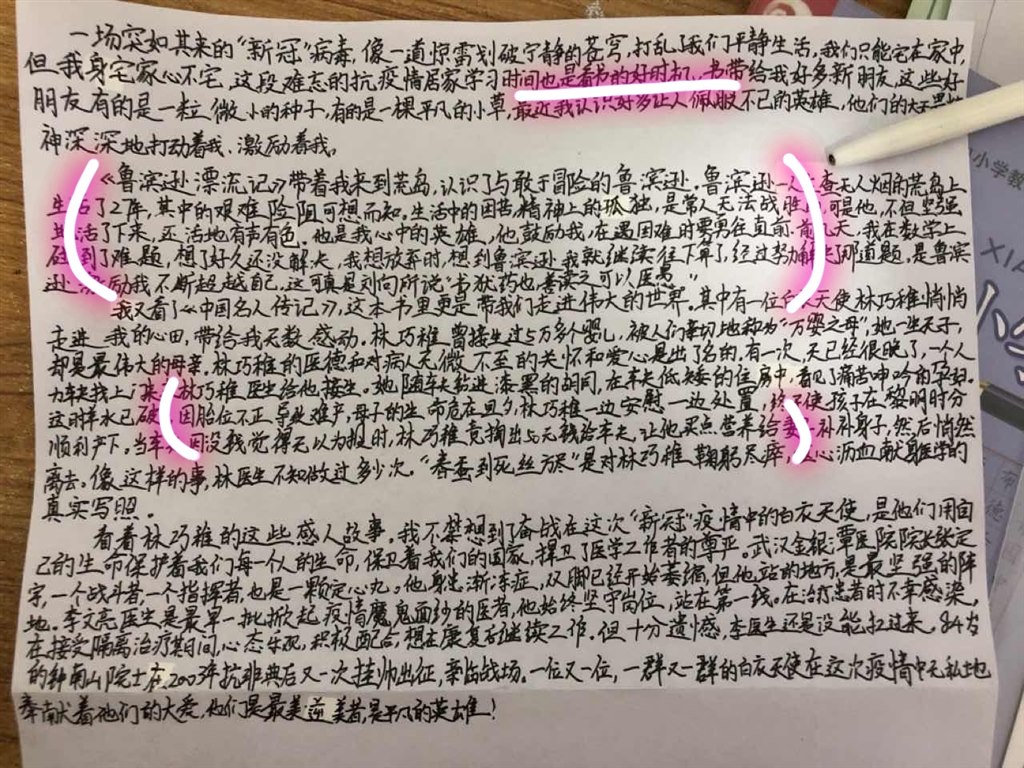 一场突如其来的“新冠”病毒,像一道惊雷划破宁静的苍穹,打乱了我们平静生活,我们只能宅在家中,
但我身宅家心不宅,这段难忘的抗疫情居家学习时间也是看书的好时机,书带给我好多新朋友,这些好
朋友有的是一粒微小的种子,有的是一棵平凡的小草,最近我认识好多让人佩服不已的英雄,他们的
神深深地打动着我、激励着我。
《鲁滨逊漂流记》带着我来到荒岛,认识了与敢于冒险的鲁滨逊。鲁滨逊一人在杳无人烟的荒岛上
生活了2 年,其中的艰难险阻可想而知。生活中的困苦,精神上的孤独,是常人无法战胜 可是他,不但坚强
地活了下来,还活地有声有色。他是我心中的英雄,他鼓励我,在遇困难时要勇往直前。前几天,我在数学上
碰到了难题,想了好久还没解决,我想放弃时,想到鲁滨逊我就继续往下算了,经过努力解决了那道题,是鲁滨
逊激励我不断超越自己,这可真是刘向所说“书犹药也,善读之可以医愚”
我又看了《中国名人传记》,这本书里更是带我们走进伟大的世界。其中有一位白衣天使林巧稚悄悄
走进我的心田,带给我无数感动。林巧稚曾接生过5万多个婴儿,被人们亲切地称为“万婴之母”,她一生无子,
却是最伟大的母亲。林巧稚的医德和对病人无微不至的关怀和爱心是出了名的,有一次,天已经很晚了,一个人
力车夫找上门来 林巧稚医生给他接生。她随车夫钻进漆黑的胡同,在车夫低矮的住房中,看见了痛苦呻吟的孕妇。
这时羊水已破 因胎位不正,导致难产,母子的生命危在旦夕,林巧稚一边安慰一边处置,终于使孩子在黎明时分
顺利产下。当车夫因没钱觉得无以为报时,林巧稚竟掏出5元钱给车夫,让他买点营养给妻子补补身子,然后悄然
离去。像这样的事,林医生不知做过多少次。“春蚕到死丝方尽”是对林巧稚鞠躬尽瘁, 心沥血献身医学的
真实写照。
看着林巧稚的这些感人故事。我不禁想到了奋战在这次“新冠”疫情中的白衣天使,是他们用自
己的生命保护着我们每一个人的生命,保卫着我们的国家,捍卫了医学工作者的尊严。武汉金银潭医院院长张定
宇,一个战斗者,一个指挥者,也是一颗定心丸。他身患渐冻症,双脚已经开始萎缩,但他站的地方,是最坚强的阵
地。李文亮医生是最早一批掀起疫情魔鬼面纱的医者,他始终坚守岗位,站在第一线。在治疗患者时不幸感染。
在接受隔离治疗期间,心态乐观,积极配合,想在康复后继续工作,但十分遗憾,李医生还是没能扛过来。84岁
的钟南山院士在2003年抗非典后又一次挂帅出征,亲临战场。一位又一位,一群又一群的白衣天使在这次疫情中无私地
奉献着他们的大爱,他们是最美逆